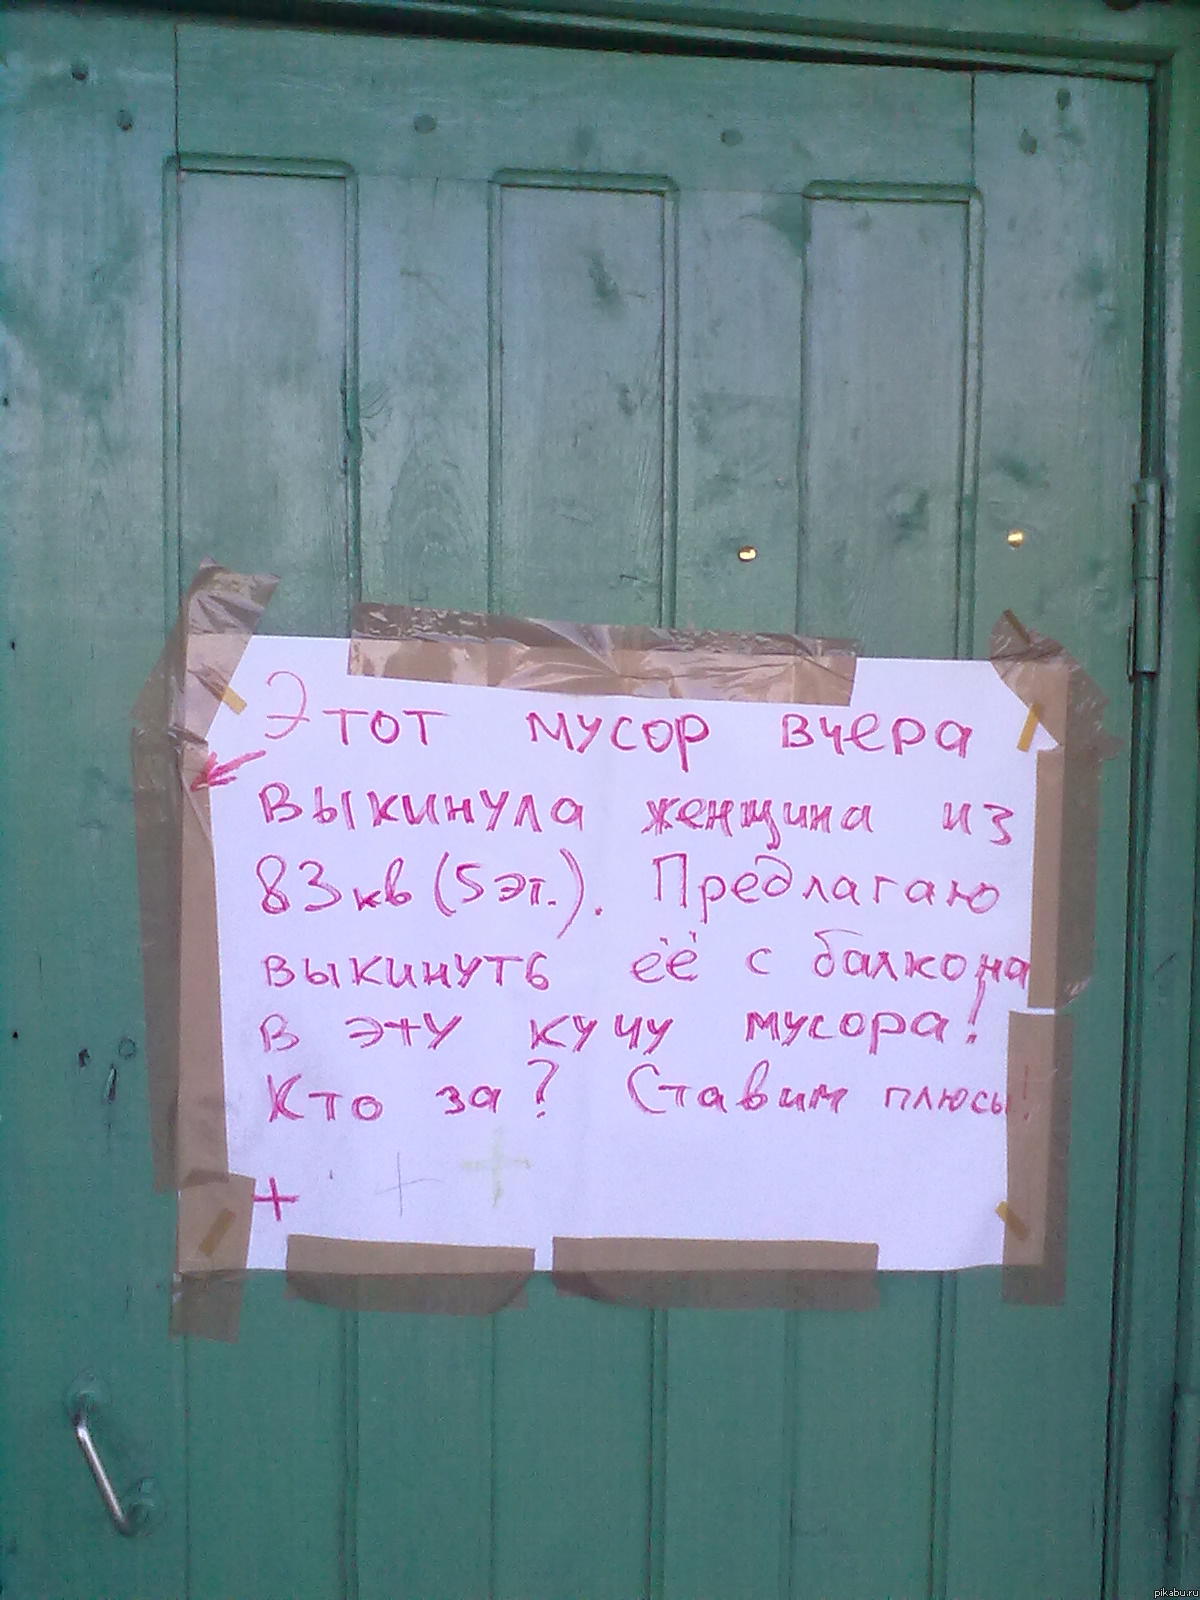 Этот мусор вчера
выкинула женщина из
83кв (5эт.). Предлагаю
выкинуть её с балкона
в эту кучу мусора!
Кто за? Ставим плюсы!
+ + +
pikabu.ru